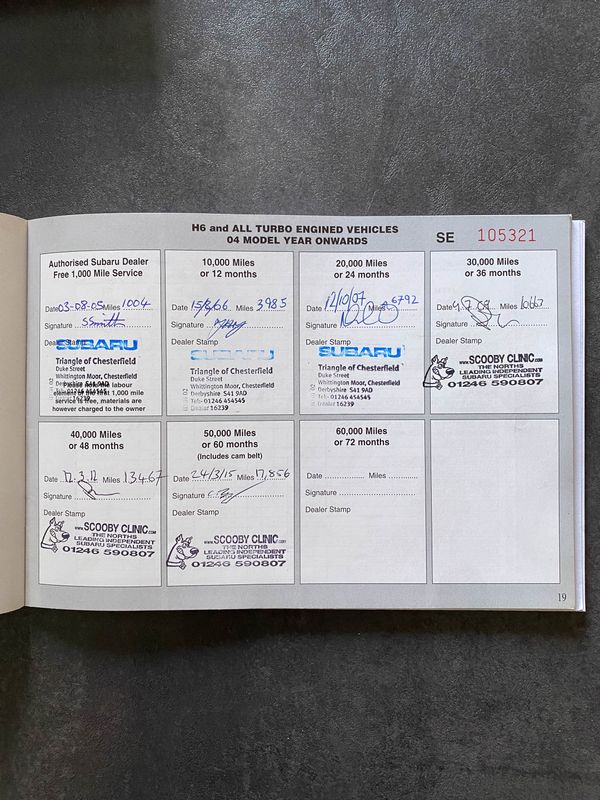 H6 and ALL TURBO ENGINED VEHICLES
04 MODEL YEAR ONWARDS
SE 105321
Authorised Subaru Dealer
Free 1,000 Mile Service
Date 03-08-05 Miles 1004
Signature SSmith
Dealer Stamp
SUBARU
Triangle of Chesterfield
Duke Street
Whittington Moor, Chesterfield
Derbyshire S41 9AD
Tel: 01246 454545
16239
Please note the labour
element of the first 1,000 mile
service is free, materials are
however charged to the owner
10,000 Miles
or 12 months
Date 15/8/06 Miles 3985
Signature
Dealer Stamp
SUBARU
Triangle of Chesterfield
Duke Street
Whittington Moor, Chesterfield
Derbyshire S41 9AD
Tel: 01246 454545
Dealer 16239
20,000 Miles
or 24 months
Date 12/10/07 Miles 6792
Signature
Dealer Stamp
SUBARU
Triangle of Chesterfield
Duke Street
Whittington Moor, Chesterfield
Derbyshire S41 9AD
Tel: 01246 454545
Dealer 16239
30,000 Miles
or 36 months
Date Miles 10663
Signature
Dealer Stamp
www.SCOOBY CLINIC.com
THE NORTHS
LEADING INDEPENDENT
SUBARU SPECIALISTS
01246 590807
40,000 Miles
or 48 months
Date 12.3.12 Miles 13467
Signature
Dealer Stamp
www.SCOOBY CLINIC.com
THE NORTHS
LEADING INDEPENDENT
SUBARU SPECIALISTS
01246 590807
50,000 Miles
or 60 months
(Includes cam belt)
Date 24/3/15 Miles 17,856
Signature
Dealer Stamp
www.SCOOBY CLINIC.com
THE NORTHS
LEADING INDEPENDENT
SUBARU SPECIALISTS
01246 590807
60,000 Miles
or 72 months
Date Miles
Signature
Dealer Stamp
19